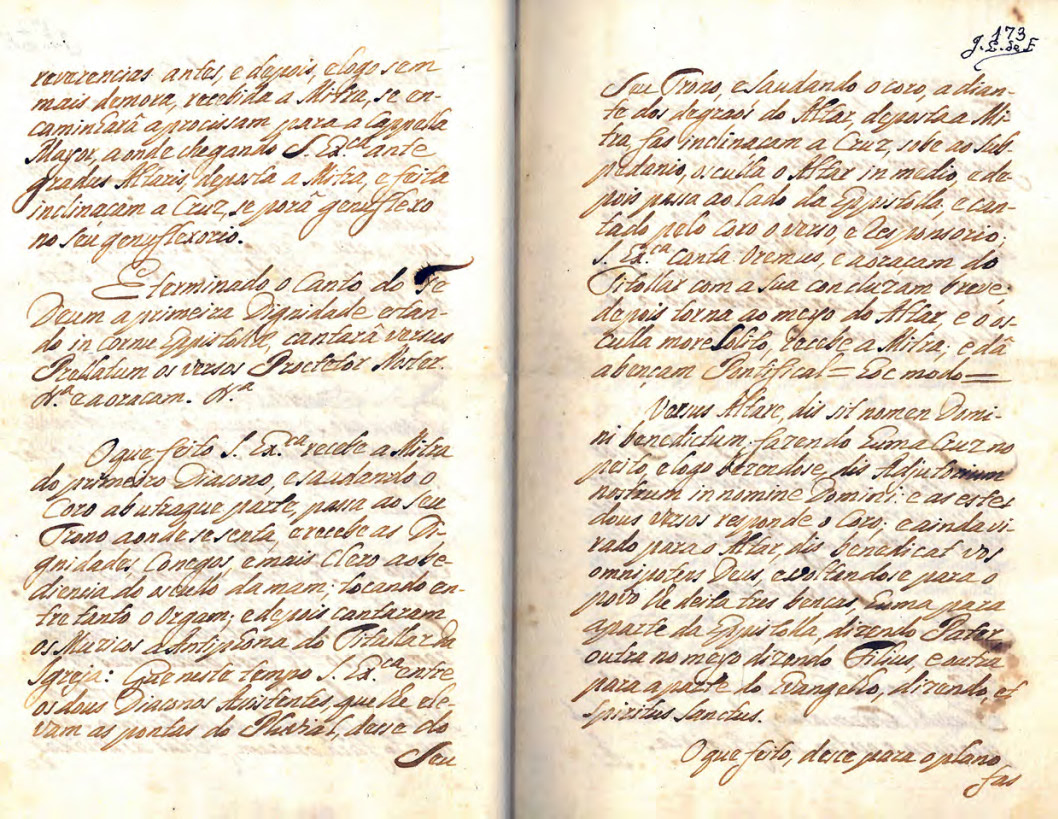 reverencias antes, e depois, e logo sem
mais demora, recebida a Mitra, se en-
caminharâ a procissam para a Cappella
Mayor, aonde chegando S. Ex.ca ante
gradus Altaris, deposta a Mitra, e feita
inclinacam a Cruz, se porâ genuflexo
no seu genuflexorio.
E terminado o Canto do Te
Deum a primeira Dignidade estan-
do in cornu Eppistolæ, cantarâ versus
Prellatum os versos Protetor Noster.
&.a e a oracam. &.a
O que feito S. Ex.ca recebe a Mitra
do primeiro Diacono, e saudando o
Coro ab utraque parte, passa ao seu
Trono aonde se senta, e recebe as Di-
gnidades, Conegos, e mais Clero a obe-
diensia do osculo da mam; tocando en-
tre tanto o Orgam; e depois cantaram
os Muzicos a Antiphona do Titullar da
Igreja: Que neste tempo S. Ex.ca entre
os dous Diaconos Asistentes, que lhe ele-
vam as pontas do Pluvial, desse do
Seu
173
J. E. de F
Seu Trono, e saudando o coro, a dian-
te dos degraos do Altar, deposta a Mi-
tra, fas inclinacam a Cruz, sobe ao sub-
pedanio, osculla o Altar in medio, e de-
pois passa ao lado da Eppistolla, e can-
tado pelo Coro o verso, e Responsorio;
S. Ex.ca canta Oremus, e a oraçam do
Titollar com a sua concluzam breve
depois torna ao meyo do Altar, e o os-
culla more solito, recebe a Mitra; e dâ
a bençam Pontifical = Hoc modo =
Versus Altare, dis sit nomen Domi-
ni benedictum: fazendo huma Cruz no
peito, e logo benzendose, dis Adjutorium
nostrum in nomine Domini: e as estes
dous versos responde o Coro; e ainda vi-
rado para o Altar, dis benedicat vos
omnipotens Deus, e voltandose para o
povo lhe deita tres bencas, huma para
a parte da Eppistolla, dizendo Pater
outra no meyo dizendo Filius, e outra
para a parte do Evangelho, dizendo, et
Spiritus Sanctus.
O que feito, desce para o plano,
fas